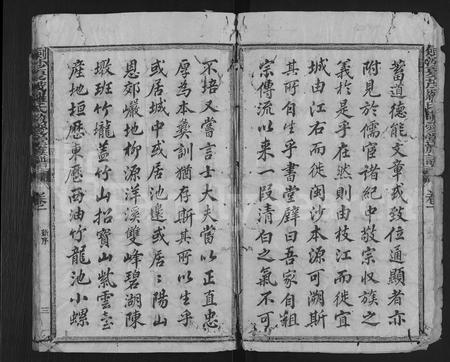 蓄道德能文章或致位通顯者亦
附見於儒宦諸紀中敬宗收族之
義於是乎在然則由枝江而徙宜
城由江右而徙閩沙本源可溯斯
其所自出乎書堂嶭曰吾家自祖
宗傳流以來一段清白之氣不可
不培又嘗言士大夫當以正直忠
厚為本彝訓猶存斯其所以生乎
或居城中或居池邊或居陽山
恩郊巖地柳源洋溪雙峰碧湖陳
墩班竹壠蓋竹山招寶山紫雲臺
產地垣歷東歷西油竹龍池小螺